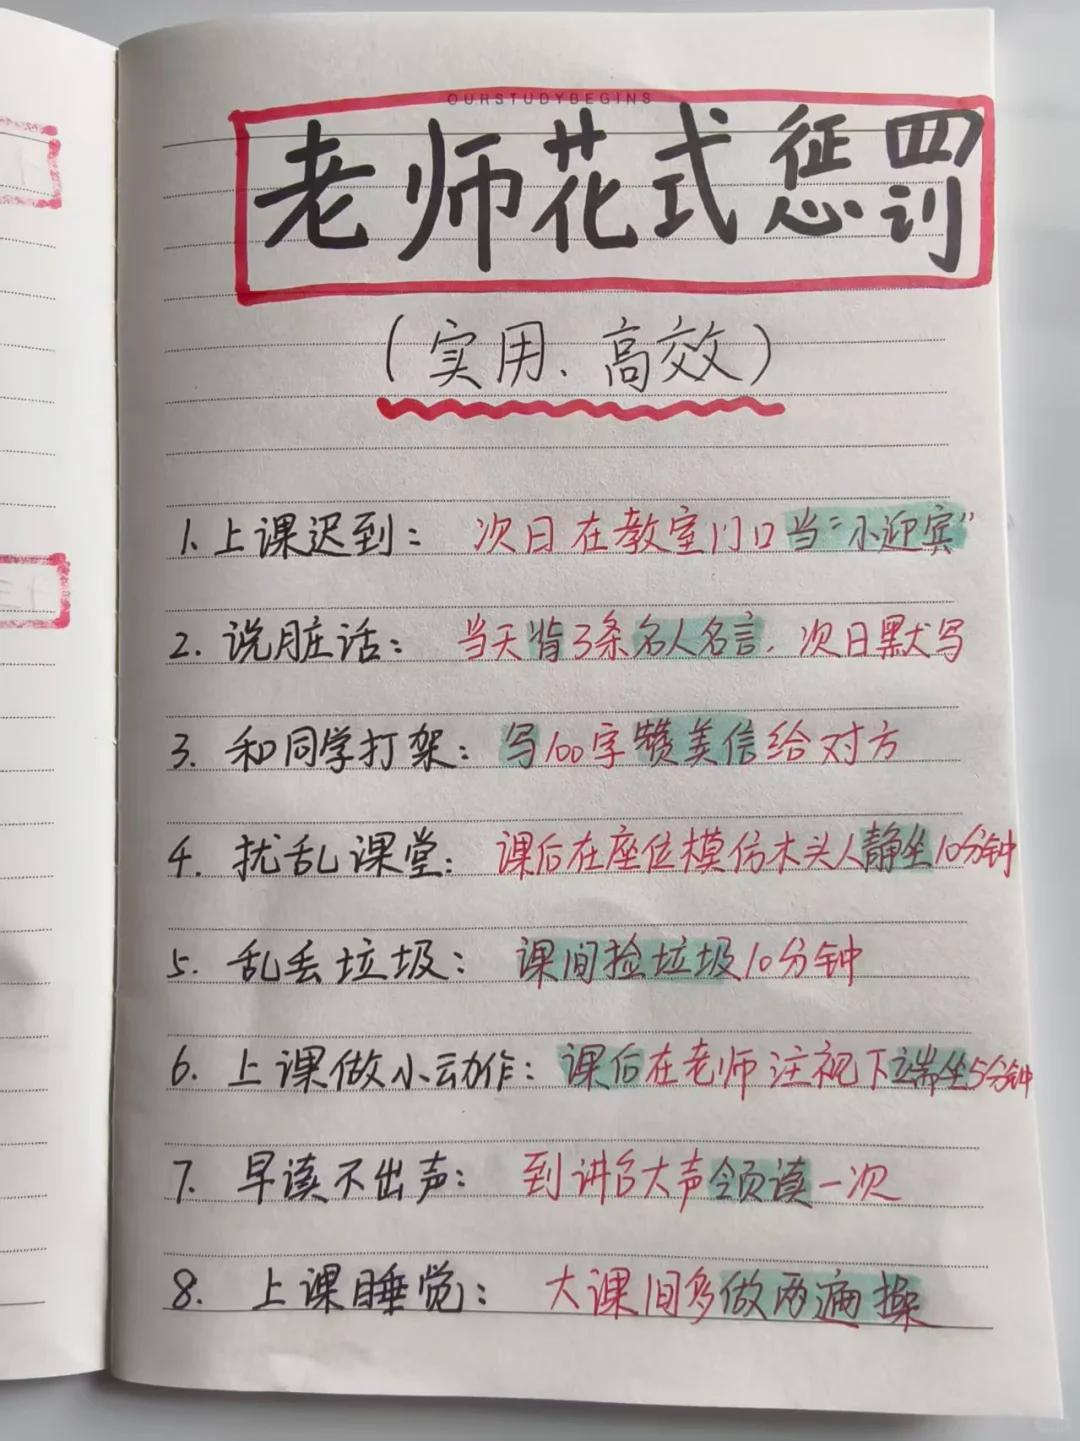 OURSTUDYBEGINS
老师花式惩罚
(实用、高效)
1.上课迟到: 次日在教室门口当"小迎宾"
2.说脏话: 当天背3条名人名言,次日默写
3.和同学打架: 写100字赞美信给对方
4.扰乱课堂: 课后在座位模仿木头人静坐10分钟
5.乱丢垃圾: 课间捡垃圾10分钟
6.上课做小动作: 课后在老师注视下端坐5分钟
7.早读不出声: 到讲台大声领读一次
8.上课睡觉: 大课间多做两遍操